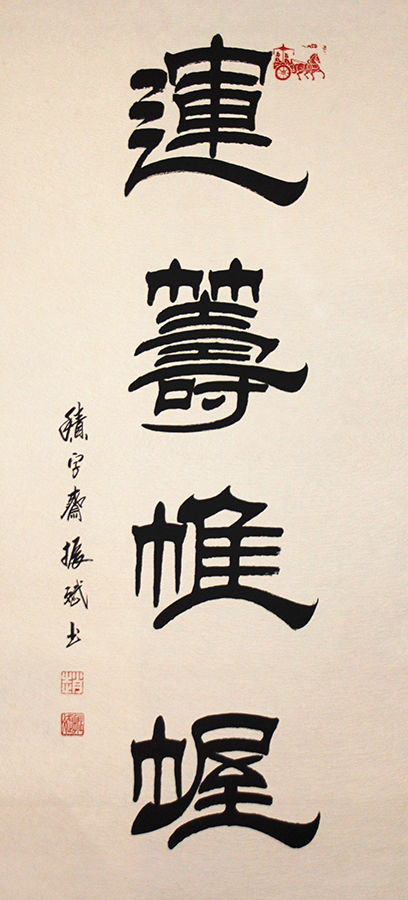 運籌帷幄
積字齋振斌书